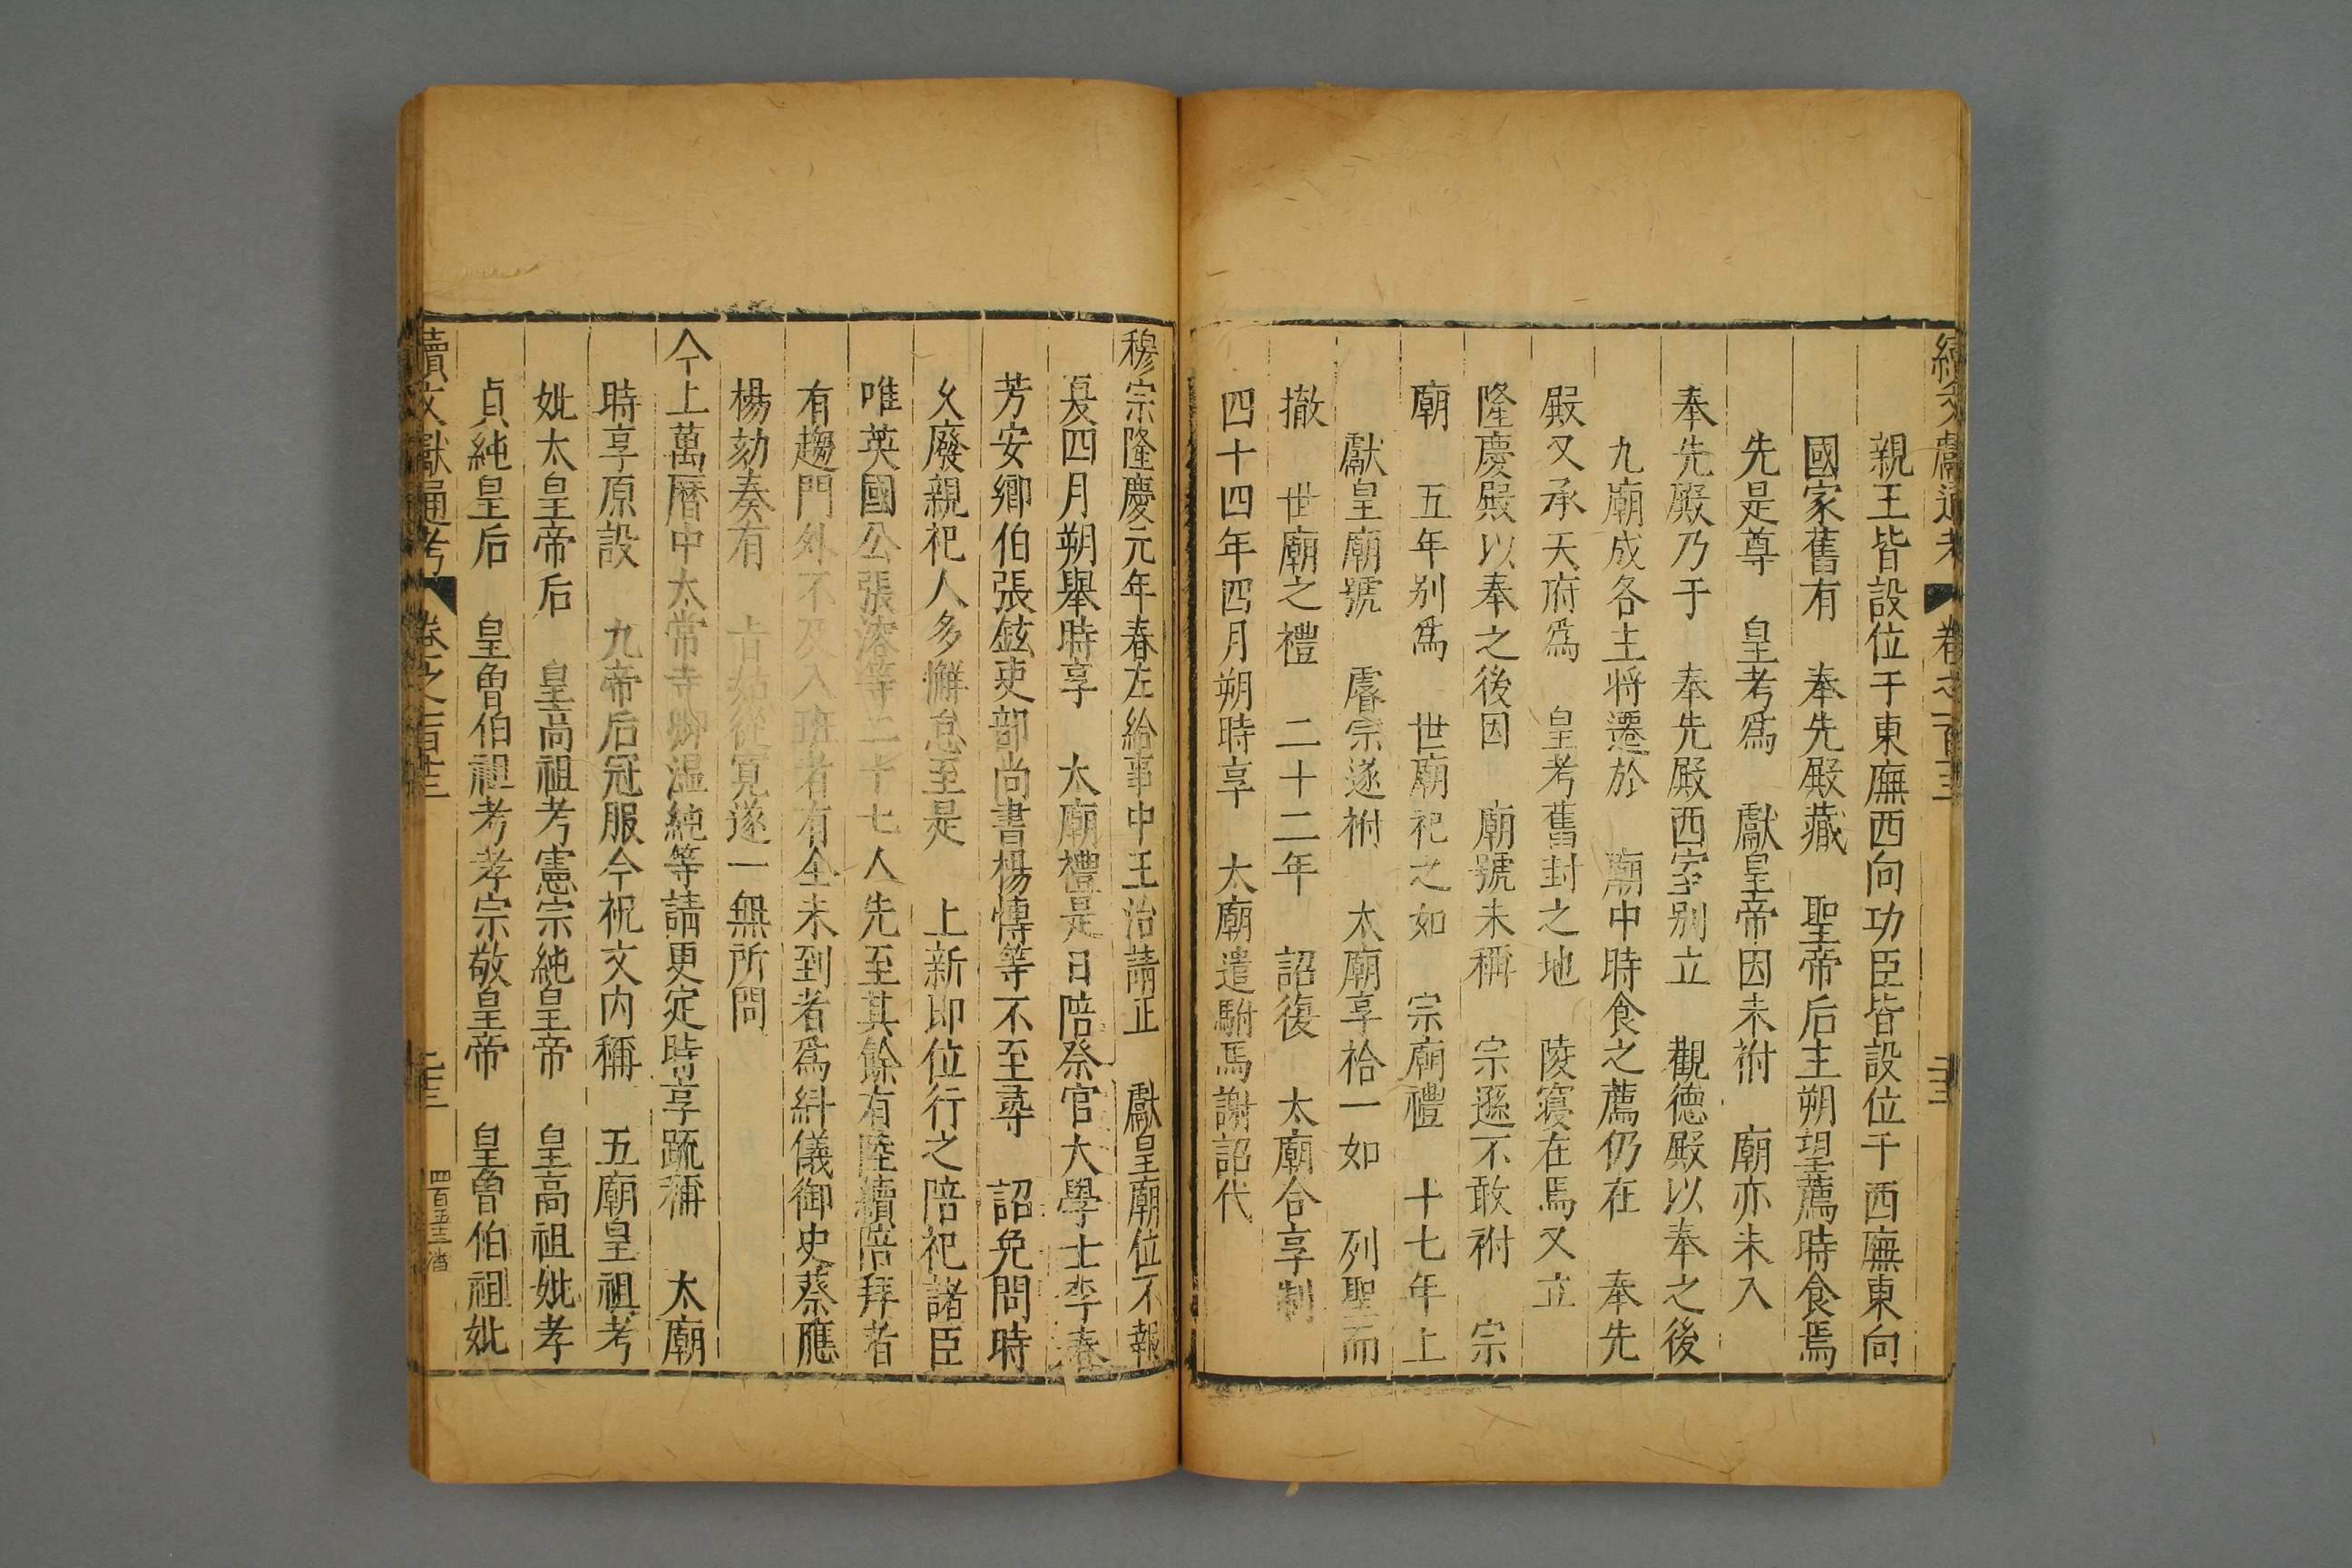 親王皆設位于東廡西向功臣皆設位于西廡東向
國家舊有　奉先殿藏　聖帝后主朔望薦時食焉
先是尊　皇考爲　獻皇帝因未祔　廟亦未入
奉先殿乃于　奉先殿西室別立　觀德殿以奉之後
九廟成各主將遷於　廟中時食之薦仍在　奉先
殿又承天府爲　皇考舊封之地　陵寢在焉又立
隆慶殿以奉之後因　廟號未稱　宗遜不敢祔　宗
廟　五年别爲　世廟祀之如　宗廟禮　十七年上
獻皇廟號　睿宗遂祔　太廟享祫一如　列聖而
撤　世廟之禮　二十二年　詔復　太廟合享制
四十四年四月朔時享　太廟遣駙馬謝詔代
穆宗隆慶元年春左給事中王治請正　獻皇廟位不報
夏四月朔舉時享　太廟禮是日陪祭官大學士李春
芳安鄉伯張鋐吏部尚書楊慱等不至尋　詔免問時
乆廢親祀人多懈怠至是　上新即位行之陪祀諸臣
唯英國公張溶等二十七人先至其餘有陸續陪拜者
有趨門外不及入班者有全未到者爲糾儀御史蔡應
楊劾奏有　旨姑從寛遂一無所問
今上萬曆中太常寺卿温純等請更定時享䟽稱　太廟
時享原設　九帝后冠服今祝文内稱　五廟皇祖考
妣太皇帝后　皇高祖考憲宗純皇帝　皇高祖妣孝
貞純皇后　皇曾伯祖考孝宗敬皇帝　皇曾伯祖妣
續文獻通考　卷之一百十三　二十三